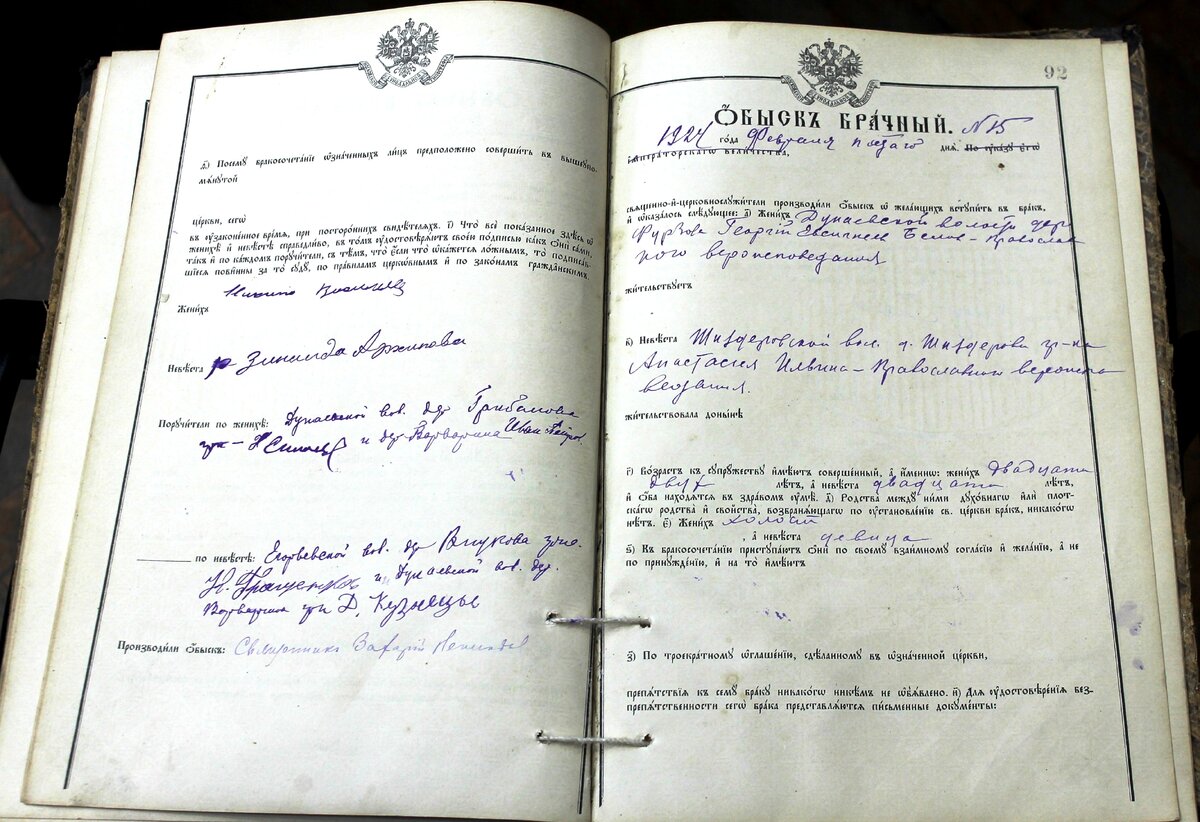 д҃) Посему бракосочетаніе ѡзначенныхъ лицъ предположено совершить въ вышеупо-
мѧнутой
церкви, сегѡ
въ ᲂузаконенное времѧ, при постороннихъ свидѣтелѧхъ. і҃) Что всѐ показанное здѣсь ѡ
женихѣ и невѣстѣ справедливо, въ томъ ᲂудостоверѧютъ своею подписью какъ ѻни сами,
такъ и по каждомъ поручители, съ тѣмъ, что єсли что ѡкажетсѧ ложнымъ, то подписав-
шіесѧ повинны за то суду, по правиламъ церковнымъ и по законамъ гражданскимъ.
Женихъ
Невѣста Зинаида Архипова
Поручители по женихѣ: Дунаевской вол. дер Грибанова
гр-н и дер Варварина Иван Петров
по невѣстѣ: Егорьевской вол. др Внукова гр-не.
и Дунаевской вол. дер.
Варварина гр-н Д. Кузнецов
Производили ѻбыскъ: Священник Захарій
92
Ѻбыскъ брачный. № 15
1924 года Февраля пятаго днѧ. По ᲂуказу єгѡ
императорскагѡ величества,
свѧщенно-и-церковнослужители производили ѻбыскъ ѡ желающихъ вступить въ бракъ,
и ѡказалось слѣдующее: а҃) Женихъ Дунаевской волости дер
Георгій Евсигнеев Белов - Православ
ного вероисповедания
жительствуетъ
в҃) Невѣста вол. д. гр-ка
Анастасия Ильина - Православного вероиспо
ведания.
жительствовала донынѣ
г҃) Возрастъ къ супружеству имѣютъ совершенный, а именно: женихъ двадцати
двух лѣтъ, а невѣста двадцати лѣтъ,
и ѻба находѧтсѧ въ здравомъ ᲂумѣ. д҃) Родства между ними духовнагѡ или плот-
скагѡ родства и свойства, возбранѧющагѡ по ᲂустановленію св. церкви бракъ, никакогѡ
нѣтъ. є҃) Женихъ холост
, а невѣста девица
ѕ҃) Къ бракосочетанію приступаютъ ѻни по своему взаимному согласію и желанію, а не
по принужденію, и на то имѣютъ
з҃) По троекратному ѡглашенію, сдѣланному въ ѡзначенной церкви,
препѧтствіѧ къ сему браку никакогѡ никѣмъ не ѡбъѧвлено. и҃) Длѧ ᲂудостовѣреніѧ без-
препѧтственности сегѡ брака представлѧютсѧ письменные документы: